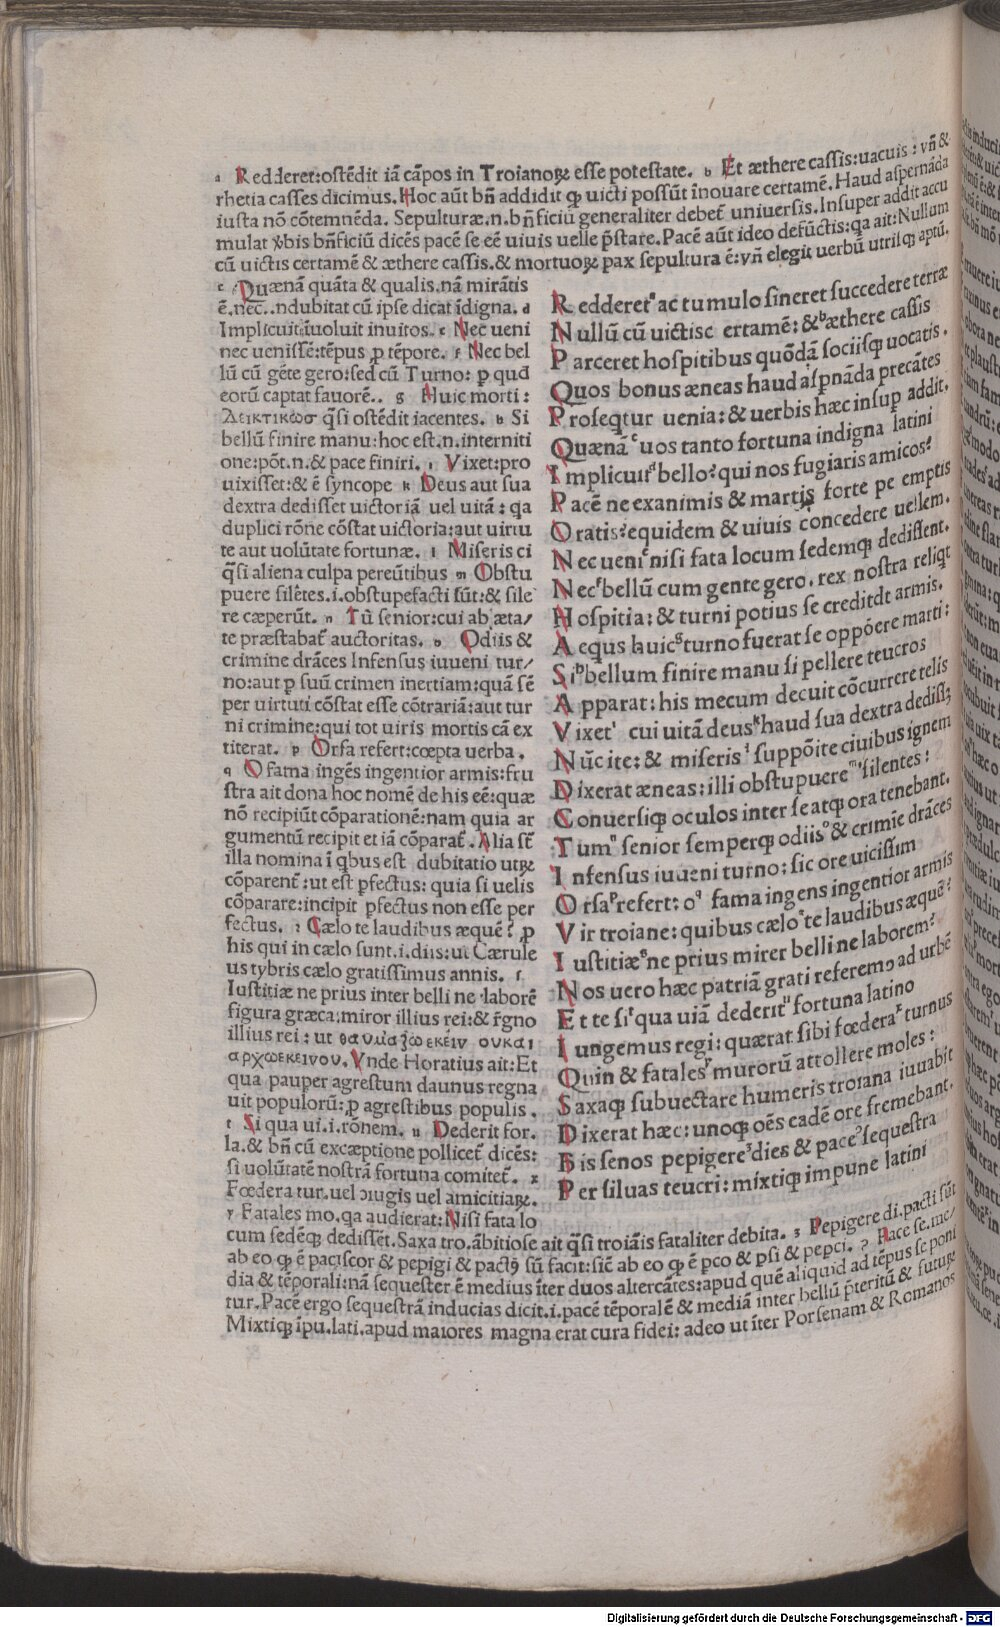 a Redderet:oſtēdit iā cāpos in Troianoꝝ eſſe poteſtate. b Et æthere caſſis:uacuis: vñ &
rhetia caſſes dicimus. Hoc aūt bñ addidit ꝙ uicti poſſūt īnouare certamē. Haud aſpernāda
iuſta nō cōtemnēda. Sepulturæ.n.bñficiū generaliter debet̄ uniuerſis. Inſuper addit accu
mulat ꝟbis bñficiū dicēs pacē ſe eē uiuis uelle p̄ſtare. Pacē aūt ideo defūctis:qa ait: Nullum
cū uictis certamē & æthere caſſis.& mortuoꝝ pax ſepultura ē:vñ elegit uerbū utriſqꝫ aptū.
c Quænā quāta & qualis.nā mirātis
ē.nec..ndubitat cū ipſe dicat īdigna. d
Implicuit:īuoluit inuitos. e Nec ueni
nec ueniſſē:tēpus ꝓ tēpore. f Nec bel
lū cū gēte gero:ſed cū Turno: ꝓ quđ
eorū captat fauorē.. g Huic morti:
Δεικτικωσ q̄ſi oſtēdit iacentes. h Si
bellū finire manu:hoc eſt.n.interniti
one:pōt.n.& pace finiri. i Vixet:pro
uixiſſet:& ē ſyncope k Deus aut ſua
dextra dediſſet uictoriā uel uitā: qa
duplici rōne cōſtat uictoria:aut uirtu
te aut uolūtate fortunæ. l Miſeris ci
q̄ſi aliena culpa pereūtibus m Obſtu
puere ſilētes.i.obſtupefacti ſūt:& ſile
re cæperūt. n Tū ſenior:cui ab æta/
te præſtabat̄ auctoritas. o Odiis &
crimine drāces Infenſus iuueni tur/
no:aut ꝓ ſuū crimen inertiam:quā ſē
per uirtuti cōſtat eſſe cōtrariā:aut tur
ni crimine:qui tot uiris mortis cā ex
titerat. p Orſa refert:cœpta uerba.
q O fama ingēs ingentior armis:fru
ſtra ait dona hoc nomē de his eē:quæ
nō recipiūt cōparationē:nam quia ar
gumentū recipit et iā cōparat̄. Alia ſt̄
illa nomina ī qbus eſt dubitatio utꝝ
cōparent̄:ut eſt ꝑfectus: quia ſi uelis
cōparare:incipit ꝑfectus non eſſe per
fectus. r Cælo te laudibus æquē? ꝓ
his qui in cælo ſunt.i.diis:ut Cærule
us tybris cælo gratiſſimus annis. ſ
Iuſtitiæ ne prius inter belli ne laborē
figura græca:miror illius rei:& r̄gno
illius rei: ut θαυμαζω εκειν ουκαι
αρχωεκεινου. Vnde Horatius ait: Et
qua pauper agreſtum daunus regna
uit populorū:ꝓ agreſtibus populis.
t Si qua ui.i.rōnem. u Dederit for.
la.& bñ cū excæptione pollicet̄ dicēs:
ſi uolūtatē noſtrā fortuna comitet̄. x
Fœdera tur.uel ↄiugis uel amicitiaꝝ.
y Fatales mo.qa audierat: Niſi fata lo
Redderetᵃ ac tumulo ſineret ſuccedere terræ
Nullū cū uictisc ertamē:&ᵇæthere caſſis
Parceret hoſpitibus quōdā ſociiſqꝫ uocatis.
Quos bonus æneas haud aſꝑnāda precātes
Proſeqtur uenia:& uerbis hæc inſuꝑ addit.
Quænāᶜ uos tanto fortuna indigna latini
Implicuitᵈ bello?qui nos fugiatis amicos?
Pacē ne exanimis & martis ſorte pe emptis
Oratis?equidem & uiuis concedere uellem.
Nec ueniᵉniſi fata locum ſedemqꝫ dediſſent.
Necᶠbellū cum gente gero.rex noſtra reliqt
Hoſpitia:& turni potius ſe creditdt armis.
Aequs huicᵍturno fuerat ſe oppōere marti:
Siʰbellum finire manu ſi pellere teucros
Apparat:his mecum decuit cōcurrere telis
Vixetⁱ cui uitā deusᵏhaud ſua dextra dediſſꝫ
Nūc ite:& miſerisˡ ſuppōite ciuibus ignem
Dixerat æneas:illi obſtupuereᵐſilentes:
Conuerſiqꝫ oculos inter ſe atqꝫ ora tenebant.
Tumⁿ ſenior ſemperqꝫ odiisᵒ& crimīe drāces
Infenſus iuueni turno:ſic ore uiciſſim
Orſaᵖrefert:oq fama ingens ingentior armis
Vir troiane:quibus cæloʳte laudibus æquē?
Iuſtitiæˢne prius mirer belli ne laborem?
Nos uero hæc patriā grati referemꝰ ad urbē
Et te ſiᵗqua uiā dederitᵘfortuna latino
Iungemus regi:quærat ſibi fœderaˣturnus
Quin & fatalesʸmurorū attollere moles:
Saxaqꝫ ſubuectare humeris troiana iuuabit
Dixerat hæc:unoqꝫ oēs eadē ore fremebant.
Bis ſenos pepigereᶻdies & paceˀſequeſtra
Per ſiluas teucri:mixtiqꝫ impune latini
cum ſedēqꝫ dediſſēt.Saxa tro.ābitioſe ait q̄ſi troiāis fataliter debita. z Pepigere di.pacti ſūt
ab eo ꝙ ē paciſcor & pepigi & pactꝰ ſū facit:ſic̄ ab eo ꝙ ē ꝑco & ꝑſi & peꝑci. ? Pace ſe.me/
dia & tēporali:nā ſequeſter ē medius īter duos altercātes:apud quē aliquid ad tēpus ſe poni
tur.Pacē ergo ſequeſtrā inducias dicit.i.pacē tēporalē & mediā inter bellū p̄teritū & futuꝝ
Mixtiqꝫ īpu.lati.apud maiores magna erat cura fidei: adeo ut īter Porſenam & Romanos
Digitalisierung gefördert durch die Deutsche Forschungsgemeinschaft - DFG